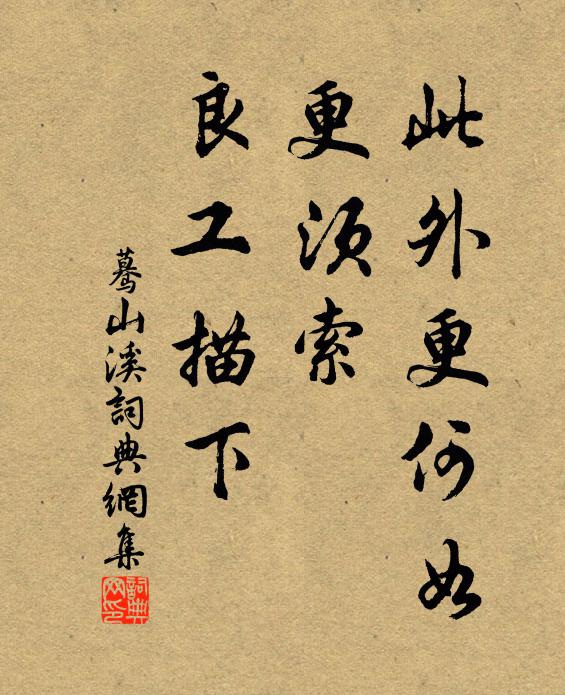 此外更何如
更须索
良工描下
蓦山溪詞典網集
詞典
网印